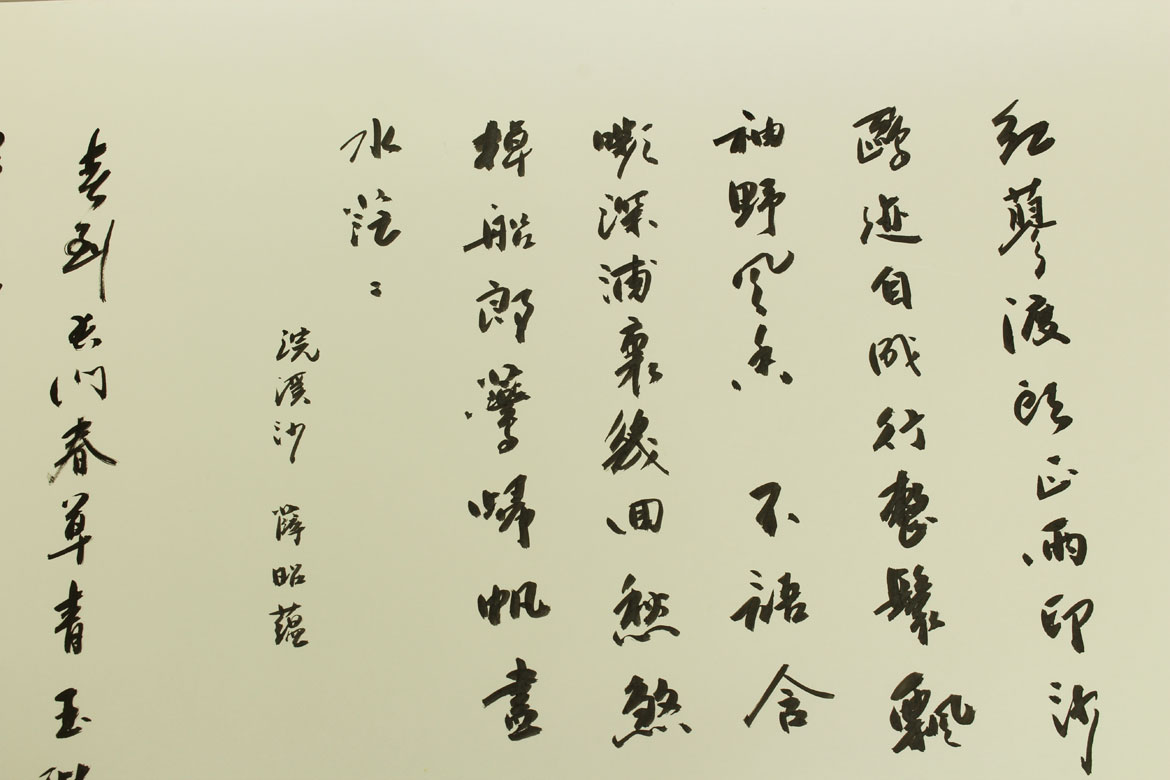 紅蓼渡頭正雨印沙
鷗迹自成行整鬟飄
袖野風香 不語含
嚬深浦裏幾回愁煞
棹船郎鷰歸帆盡
水茫〻
浣溪沙 薛昭蘊
春到長門春草青玉